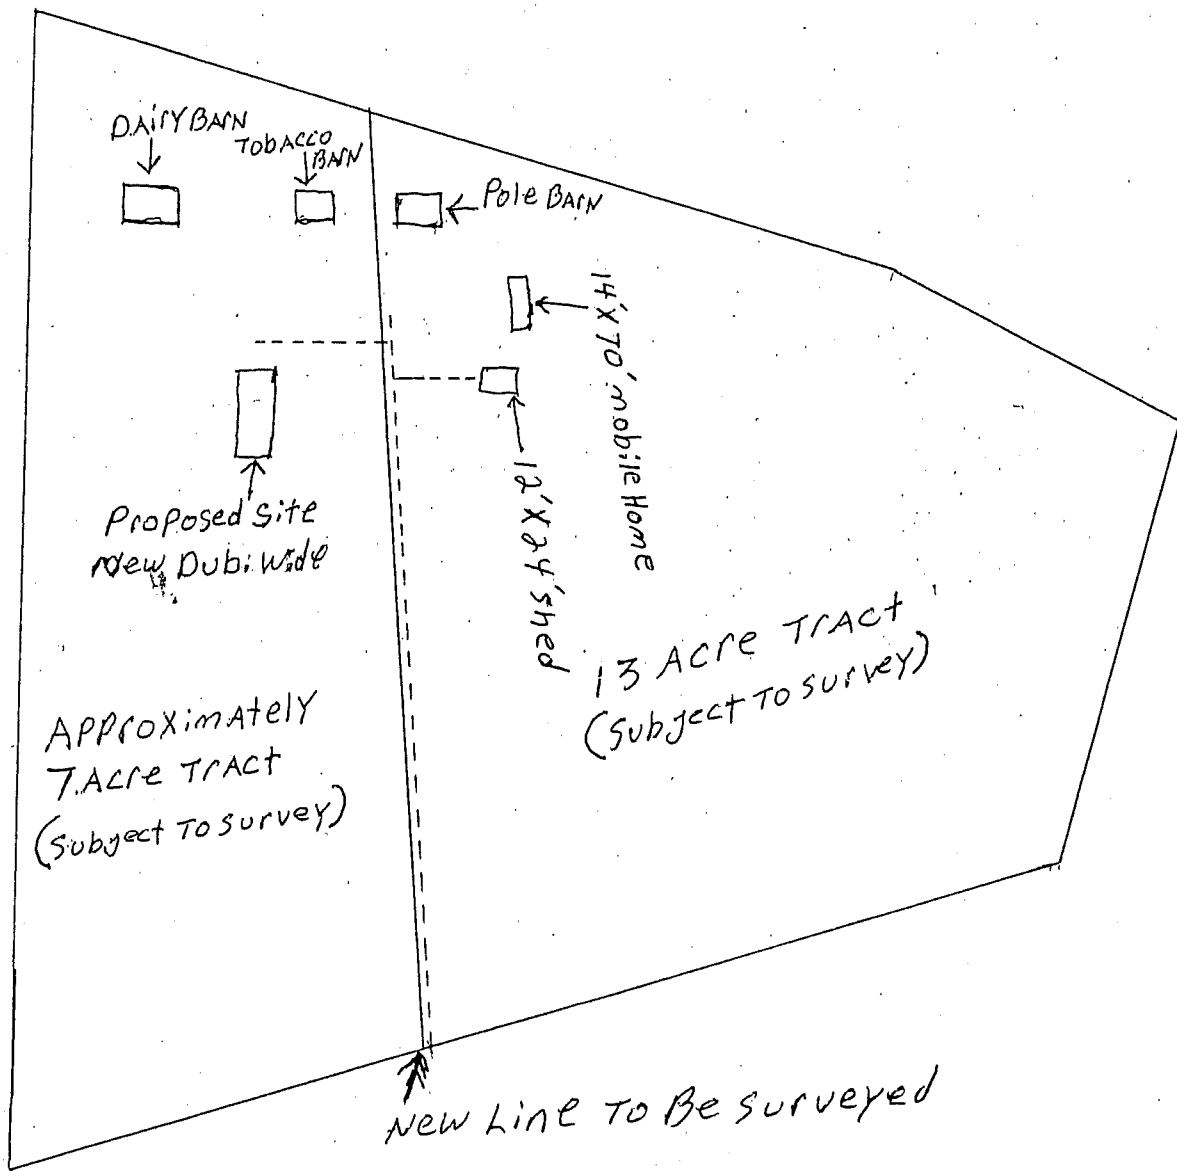 DAiryBArN
ToBACCO
BArN
Pole BArN
14'X70' mobile Home
12'X24' shed
Proposed Site
New Dubl Wide
13 Acre TrAct
(Subject To survey)
APProximAtely
7 Acre TrAct
(Subject To survey)
New Line To Be surveyed